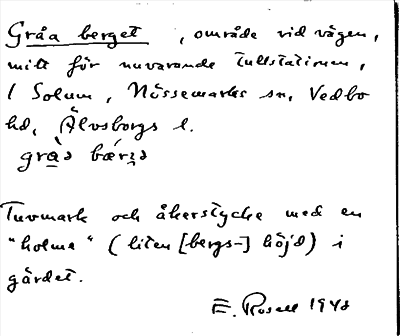 Gråa berget, område vid vägen,
mitt för nuvarande tullstationen,
i Solum, Nössemarks sn, Vedbo
hd, Älvsborgs l.
Tuvmark och åkerstycke med en
"holme" (liten [bergs-] höjd) i
gärdet.
E. Rosell